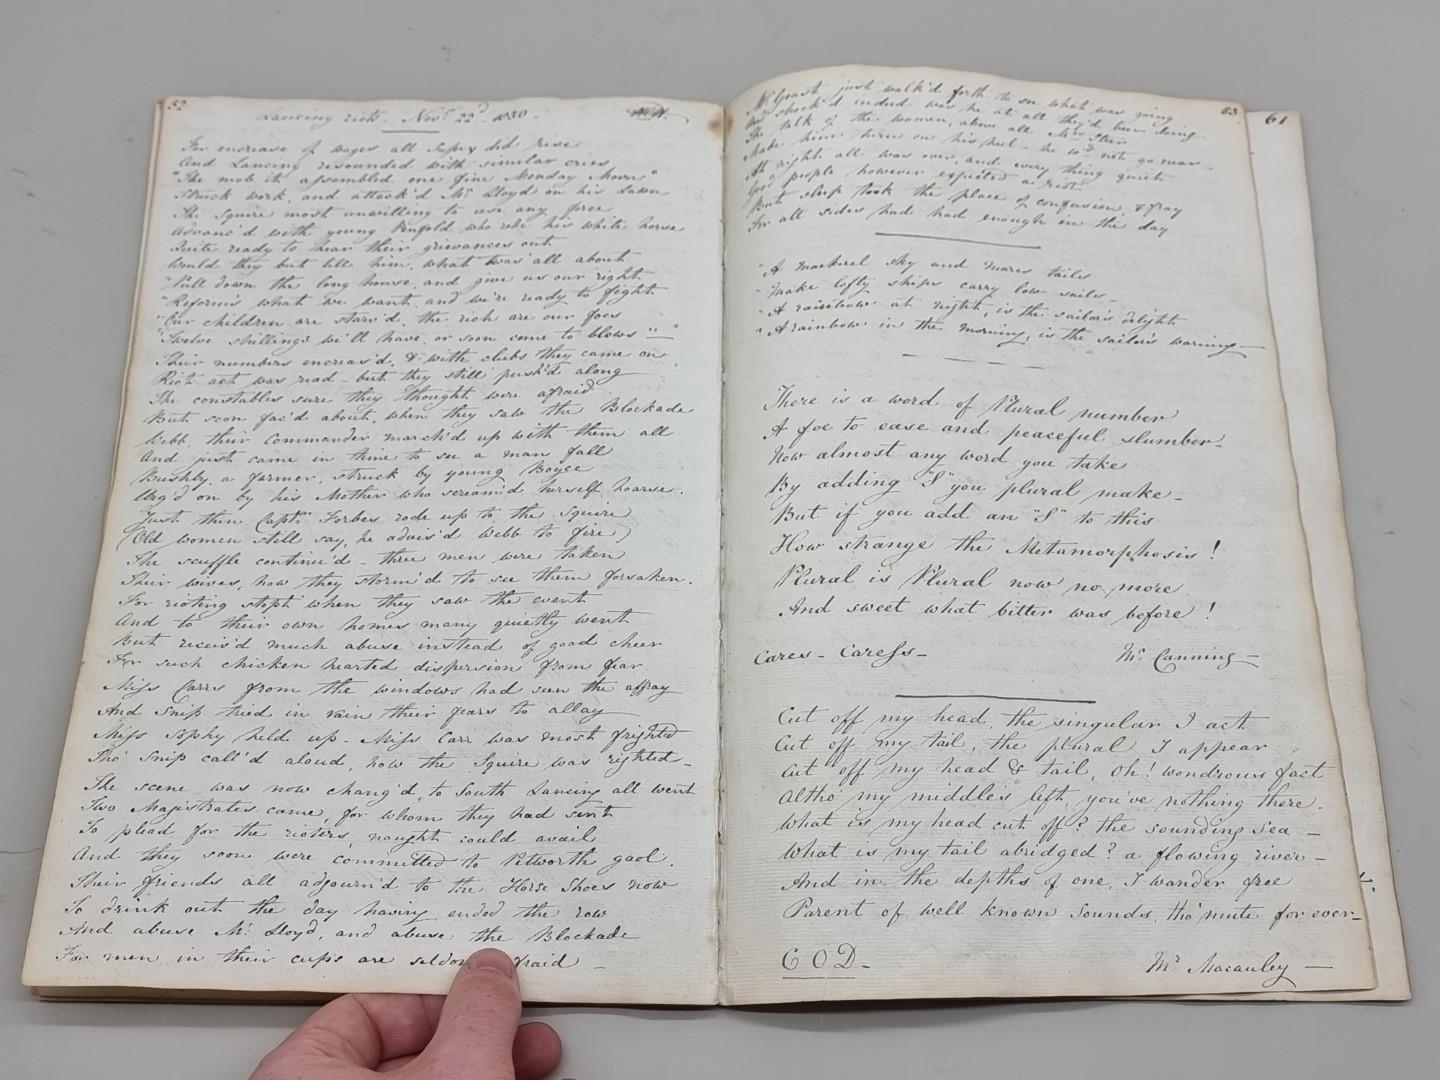 52
Lancing riots. Novr 22d 1830.
For encrease of wages all Sussex did rise
And Lancing resounded with similar cries
"The mob it assembled one fine Monday Morn"
Struck work, and attack'd Mr Lloyd on his Lawn
The Squire most unwilling to use any force
Advanc'd with young Penfold who rode his white horse
Quite ready to hear their grievances out
Would they but tell him, what twas' all about
"Pull down the long house, and give us our right
"Reform's what we want, and we're ready to fight
"Our children are starv'd, the rich are our foes
"Twelve shillings we'll have, or soon come to blows"—
Their numbers encreas'd, & with clubs they came on
Riot act was read - but they still push'd along
The constables sure they thought were afraid
But soon fac'd about, when they saw the Blockade
Webb, their Commander march'd up with them all
And just came in time to see a man fall
Bushby, a farmer, struck by young Boyce
Urg'd on by his Mother who scream'd herself hoarse.
Just then Captn Forbes rode up to the Squire
(Old women still say, he advis'd Webb to fire)
The scuffle continu'd - three men were taken
Their wives, how they storm'd to see them forsaken.
For rioting stopt when they saw the event
And to their own homes many quietly went
But receiv'd much abuse instead of good cheer
For such chicken hearted dispersion from fear
Miss Carrs from the windows had seen the affray
And Snip tried in vain their fears to allay
Miss Sophy held up - Miss Carr was most frighted
Tho' Snip call'd aloud, how the Squire was righted -
The scene was now chang'd, to South Lancing all went
Two Magistrates came, for whom they had sent
To plead for the rioters, nought could avail
And they soon were committed to Petworth gaol.
Their friends all adjourn'd to the Horse Shoes now
To drink out the day having ended the row
And abuse Mr Lloyd, and abuse the Blockade
For men in their cups are seldom afraid -
63
61
Mr Grast just walk'd forth to see what was going
And shock'd indeed was he at all they'd been doing
The talk of the women, above all Mrs
Made him turn on his heel - he wd not go near -
At night all was over, and every thing quiet
Good people however expected a riot
But sleep took the place of confusion & fray
For all sides had had enough in the day
"A mackerel sky and mares tails
"Make lofty ships carry low sails -
"A rainbow at night, is the sailor's delight
"A rainbow in the morning, is the sailor's warning -
There is a word of Plural number
A foe to ease and peaceful slumber -
Now almost any word you take
By adding "S" you plural make -
But if you add an "S" to this
How strange the Metamorphosis!
Plural is Plural now no more
And sweet what bitter was before!
Cares - Caress -
Mr Canning -
Cut off my head, the singular I act
Cut off my tail, the plural I appear
Cut off my head & tail, Oh! wondrous fact
Altho' my middle's left, you've nothing there -
What is my head cut off? the sounding sea -
What is my tail abridged? a flowing river -
And in the depths of one, I wander free
Parent of well known sounds, tho' mute for ever -
C O D -
Mr Macauley -